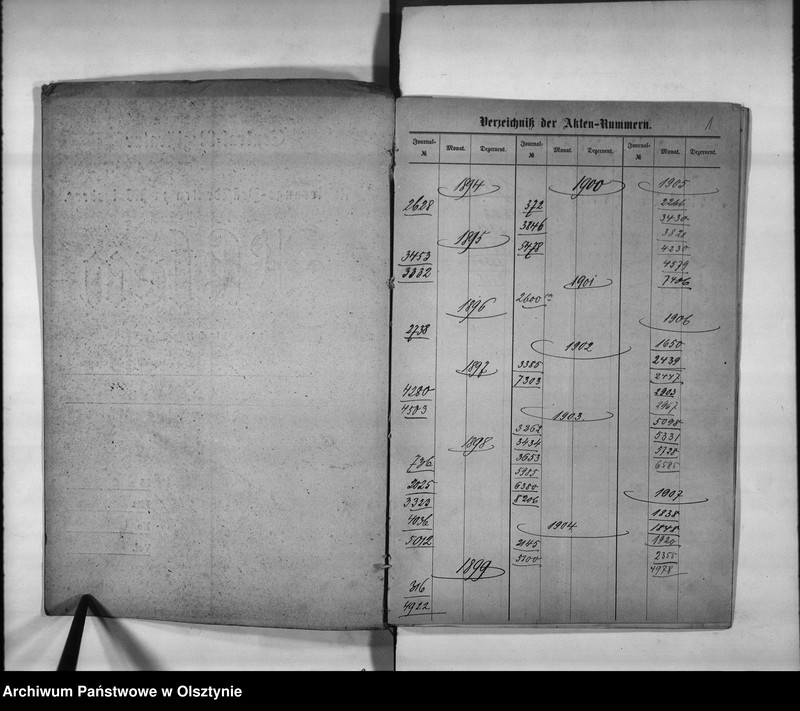 Verzeichniß der Akten-Nummern.
1
Journal-
№
Monat.
Dezernent.
Journal-
№
Monat.
Dezernent.
Journal-
№
Monat.
Dezernent.
1894
2628
1895
3453
3332
1896
2738
1897
4280
4503
1898
736
2025
3323
4036
5012
1899
316
4922
1900
372
3246
5478
1901
2600
1902
3385
7303
1903.
3262
3434
3653
5985
6380
8206
1904
2145
3700
1905
2266
3430
3821
4230
4579
7406
1906
1650
2439
2447
2903
2967
5098
5331
5728
6585
1907
1838
1848
1920
2355
4978
Archiwum Państwowe w Olsztynie